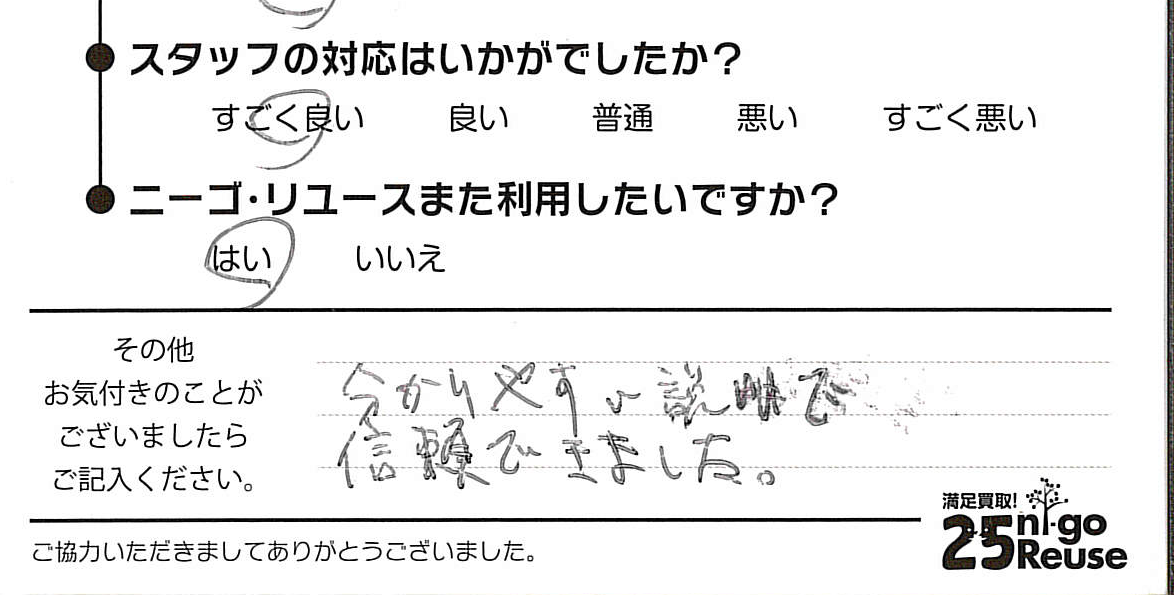 スタッフの対応はいかがでしたか？
すごく良い 良い 普通 悪い すごく悪い
ニーゴ・リユースまた利用したいですか？
はい いいえ
その他
お気付きのことが
ございましたら
ご記入ください。
分かりやすい説明で
信頼できました。
満足買取！
25 ni-go
Reuse
ご協力いただきましてありがとうございました。